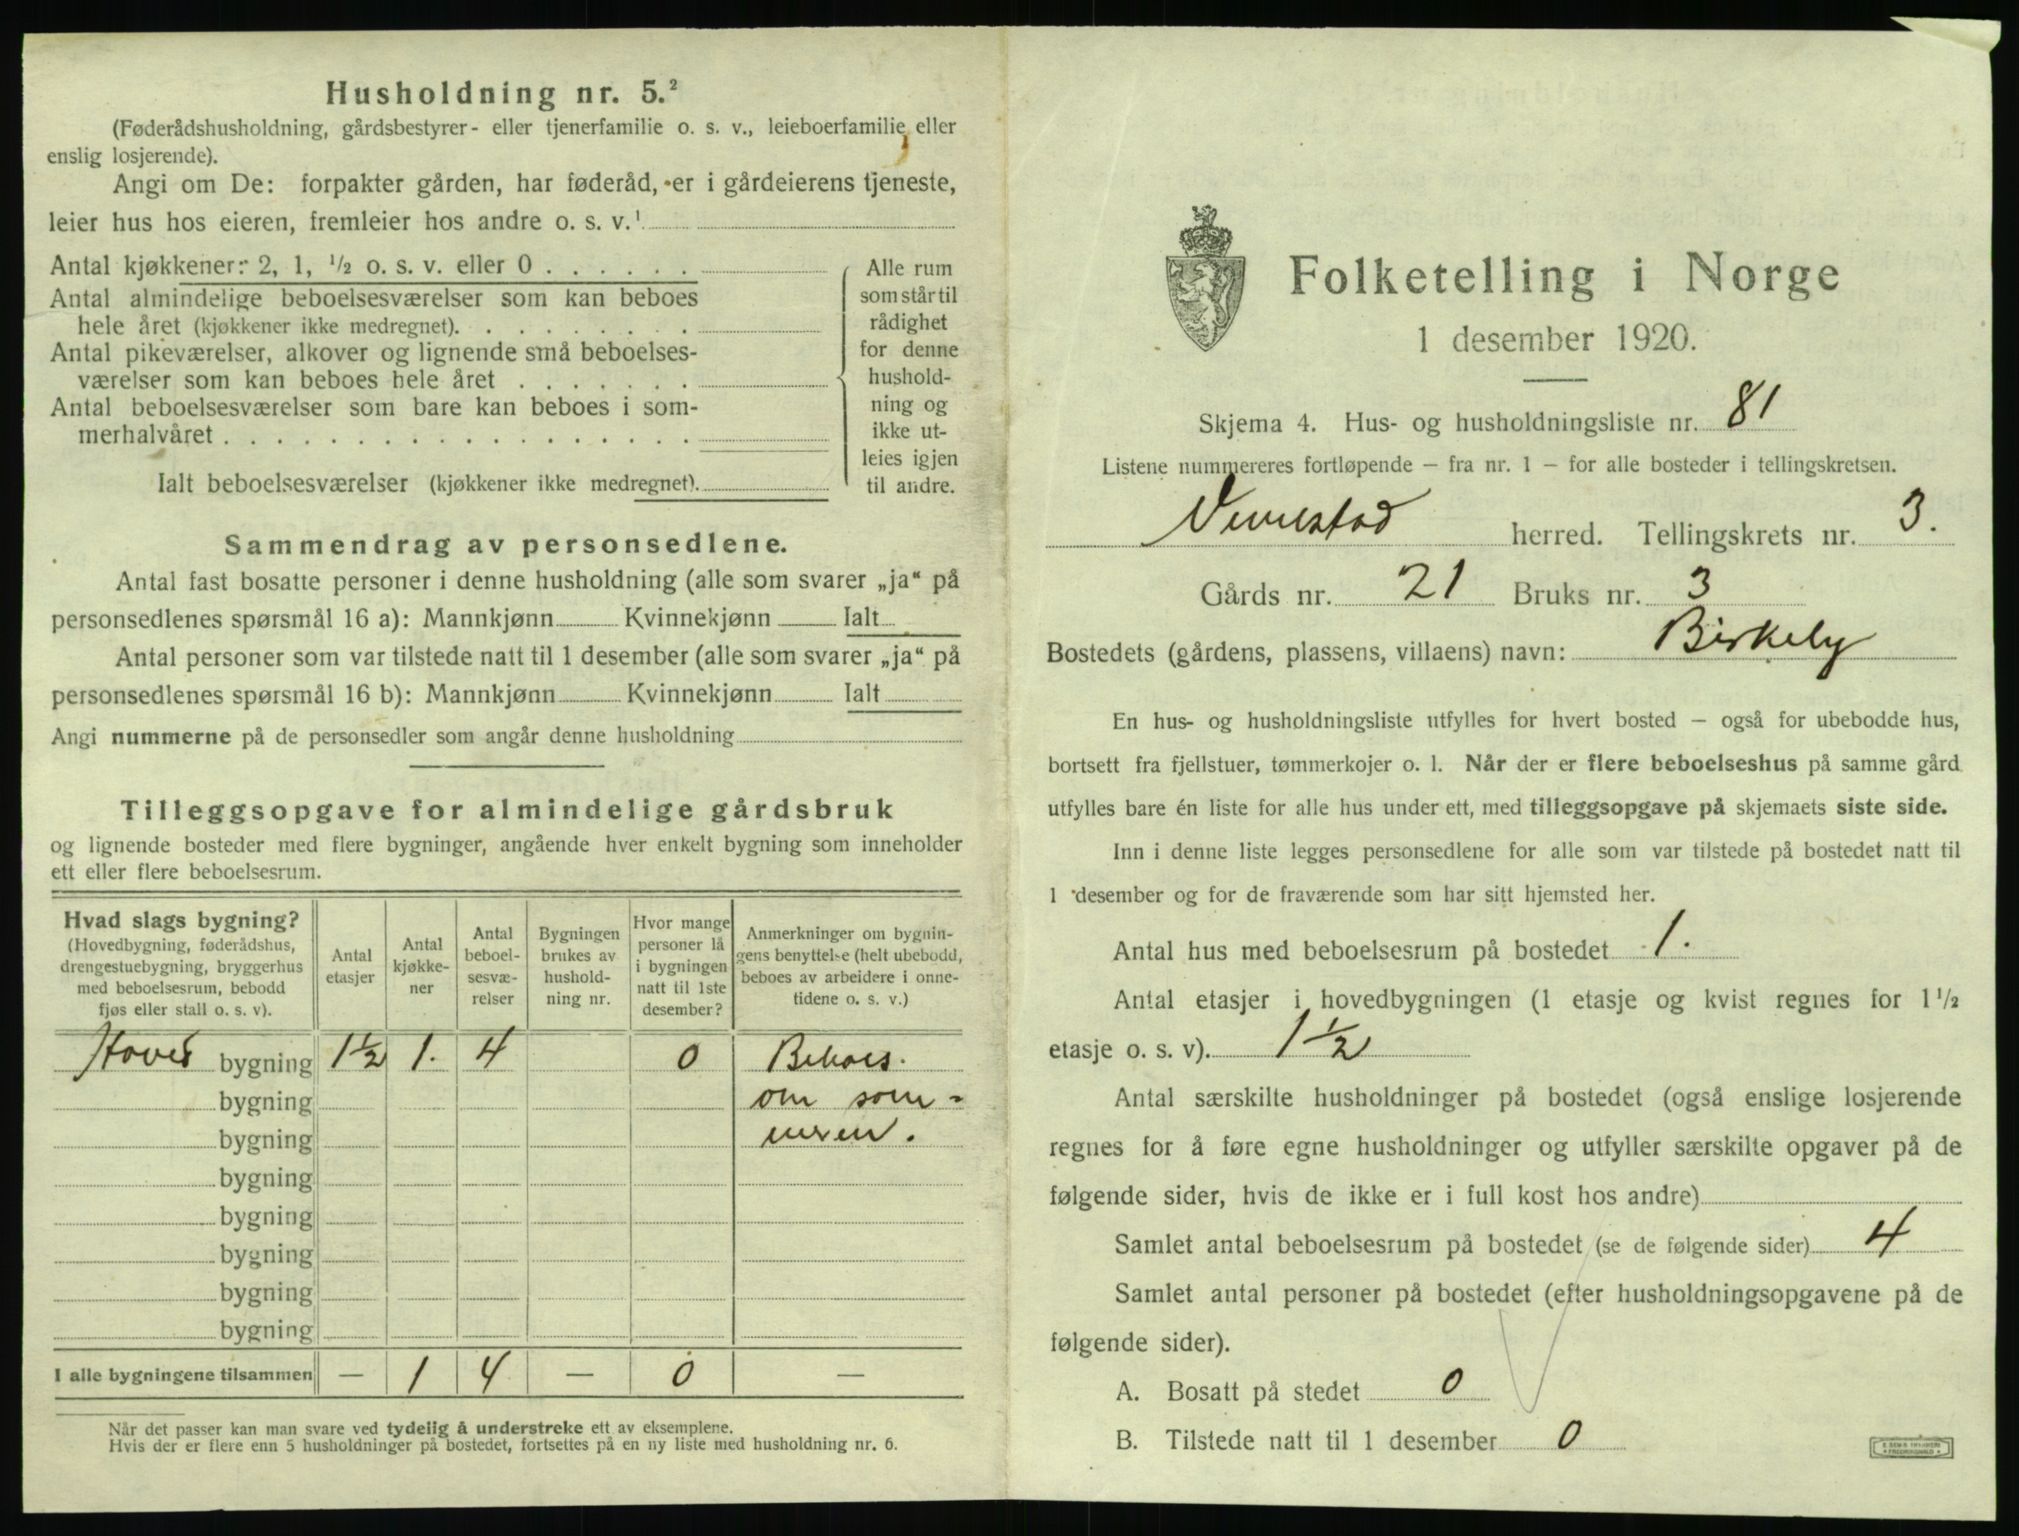 Husholdning nr. 5.²
(Føderådshusholdning, gårdsbestyrer- eller tjenerfamilie o. s. v., leieboerfamilie eller
enslig losjerende).
Angi om De: forpakter gården, har føderåd, er i gårdeierens tjeneste,
leier hus hos eieren, fremleier hos andre o. s. v.¹
Antal kjøkkener: 2, 1, ½ o. s. v. eller 0 . . . . . .
Antal almindelige beboelsesværelser som kan beboes
hele året (kjøkkener ikke medregnet). . . . . . . . .
Antal pikeværelser, alkover og lignende små beboelses-
værelser som kan beboes hele året . . . . . . .
Antal beboelsesværelser som bare kan beboes i som-
merhalvåret . . . . . . . . . . . . . . . . . .
Ialt beboelsesværelser (kjøkkener ikke medregnet).
Alle rum
som står til
rådighet
for denne
hushold-
ning og
ikke ut-
leies igjen
til andre.
Sammendrag av personsedlene.
Antal fast bosatte personer i denne husholdning (alle som svarer „ja“ på
personsedlenes spørsmål 16 a): Mannkjønn Kvinnekjønn Ialt
Antal personer som var tilstede natt til 1 desember (alle som svarer „ja“ på
personsedlenes spørsmål 16 b): Mannkjønn Kvinnekjønn Ialt
Angi nummerne på de personsedler som angår denne husholdning
Tilleggsopgave for almindelige gårdsbruk
og lignende bosteder med flere bygninger, angående hver enkelt bygning som inneholder
ett eller flere beboelsesrum.
Hvad slags bygning?
(Hovedbygning, føderådshus,
drengestuebygning, bryggerhus
med beboelsesrum, bebodd
fjøs eller stall o. s. v).
Antal
etasjer
Antal
kjøkke-
ner
Antal
beboel-
sesvæ-
relser
Bygningen
brukes av
hushold-
ning nr.
Hvor mange
personer lå
i bygningen
natt til 1ste
desember?
Anmerkninger om bygnin-
gens benyttelse (helt ubebodd,
beboes av arbeidere i onne-
tidene o. s. v.)
Hoved bygning 1½ 1. 4 0 Beboes.
bygning om som-
bygning meren.
bygning
bygning
bygning
bygning
bygning
I alle bygningene tilsammen — 1 4 — 0 —
Når det passer kan man svare ved tydelig å understreke ett av eksemplene.
Hvis der er flere enn 5 husholdninger på bostedet, fortsettes på en ny liste med husholdning nr. 6.
Folketelling i Norge
1 desember 1920.
Skjema 4. Hus- og husholdningsliste nr. 81
Listene nummereres fortløpende — fra nr. 1 — for alle bosteder i tellingskretsen.
herred. Tellingskrets nr. 3.
Gårds nr. 21 Bruks nr. 3
Bostedets (gårdens, plassens, villaens) navn: Birkely
En hus- og husholdningsliste utfylles for hvert bosted — også for ubebodde hus,
bortsett fra fjellstuer, tømmerkojer o. l. Når der er flere beboelseshus på samme gård
utfylles bare én liste for alle hus under ett, med tilleggsopgave på skjemaets siste side.
Inn i denne liste legges personsedlene for alle som var tilstede på bostedet natt til
1 desember og for de fraværende som har sitt hjemsted her.
Antal hus med beboelsesrum på bostedet 1.
Antal etasjer i hovedbygningen (1 etasje og kvist regnes for 1½
etasje o. s. v). 1½
Antal særskilte husholdninger på bostedet (også enslige losjerende
regnes for å føre egne husholdninger og utfyller særskilte opgaver på de
følgende sider, hvis de ikke er i full kost hos andre)
Samlet antal beboelsesrum på bostedet (se de følgende sider) 4
Samlet antal personer på bostedet (efter husholdningsopgavene på de
følgende sider).
A. Bosatt på stedet 0
B. Tilstede natt til 1 desember 0